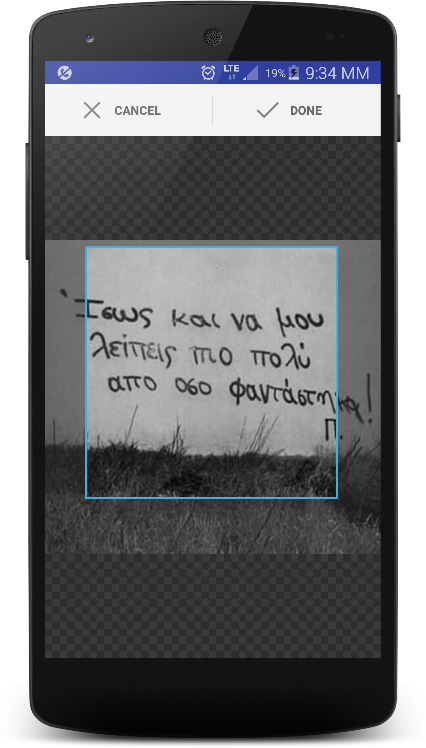 LTE 19% 9:34 MM
CANCEL DONE
Ίσως και να μου
λείπεις πιο πολύ
απο οσο φαντάστηκα!
Π.